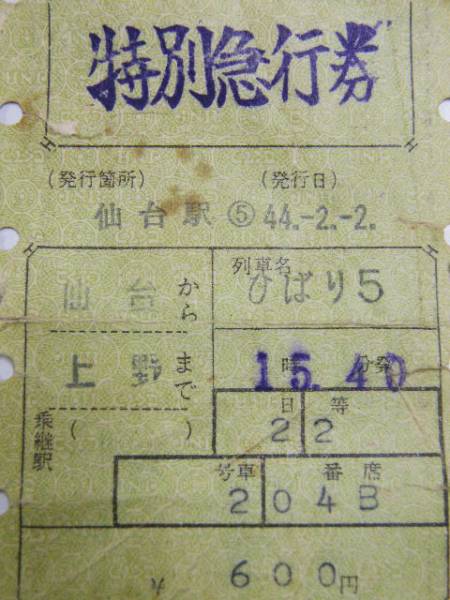 特別急行券
(発行箇所) (発行日)
仙台駅 ⑤ 44.-2.-2.
仙台から
列車名
ひばり5
上野まで
15時40分発
乗継駅 ( )
日 等
2 2
号車 番席
2 04B
¥ 600円